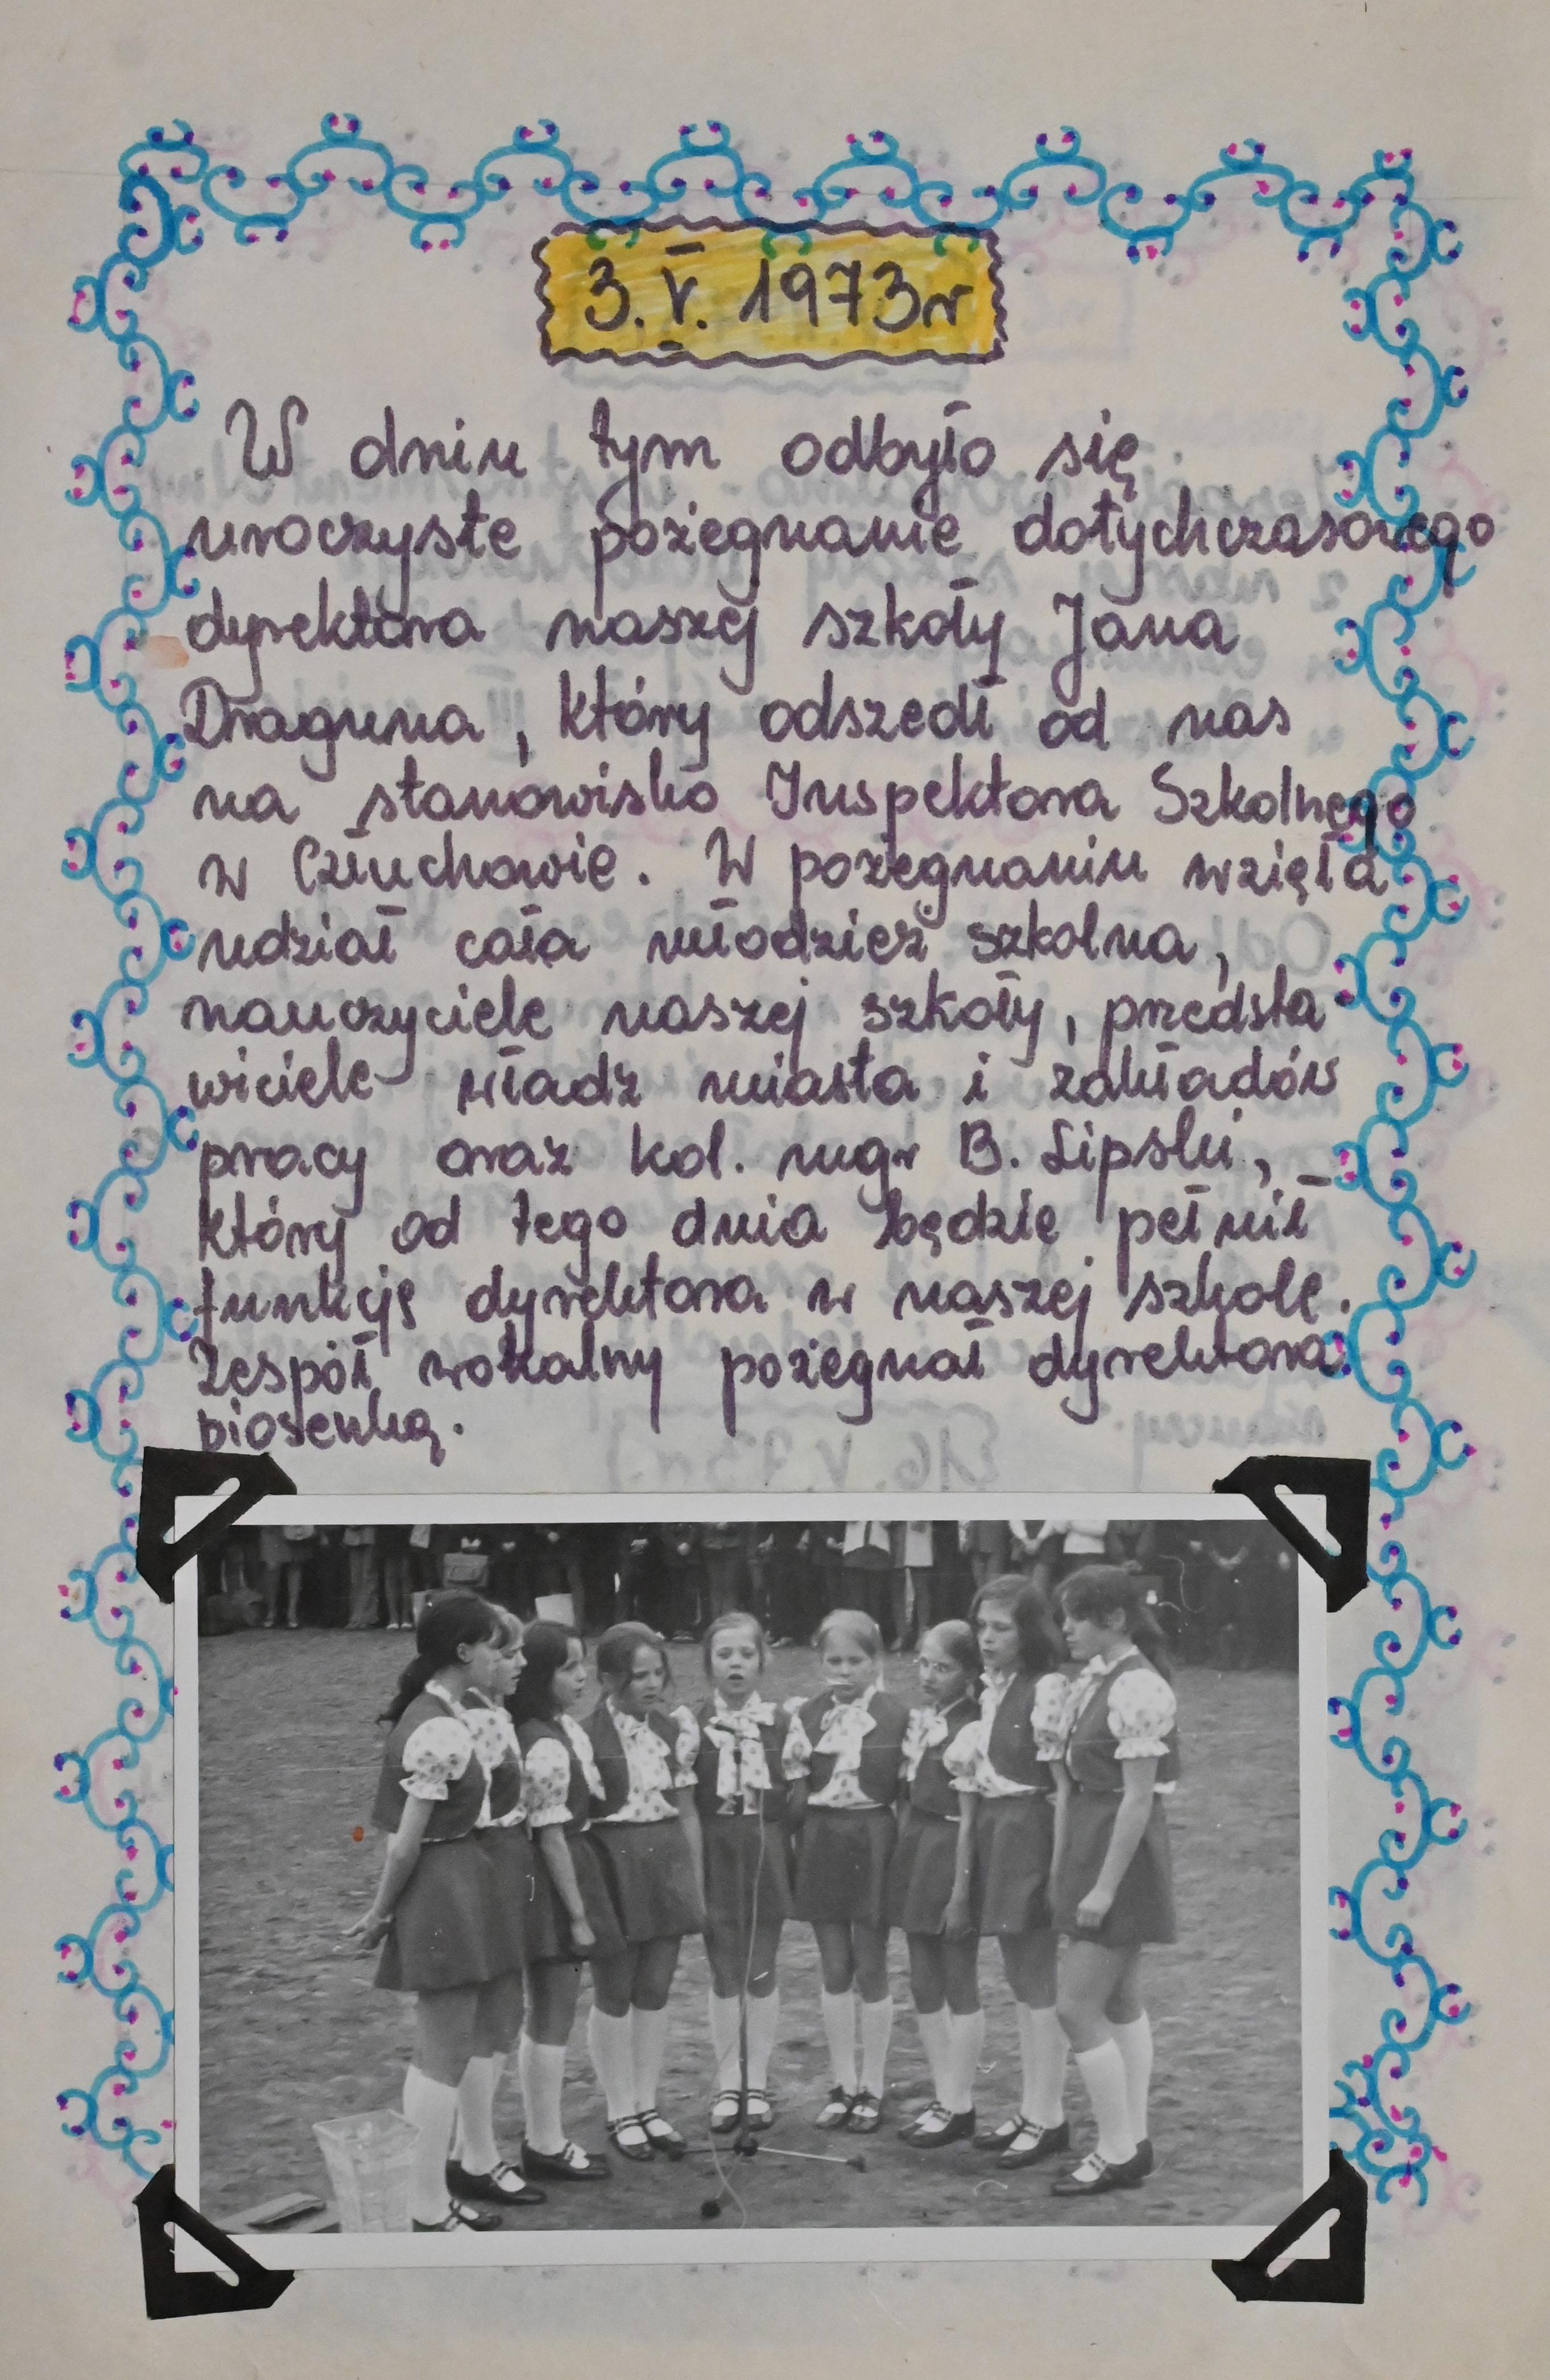 3. V. 1973r
W dniu tym odbyło się
uroczyste pożegnanie dotychczasowego
dyrektora naszej szkoły Jana
Draguna, który odszedł od nas
na stanowisko Inspektora Szkolnego
w Człuchowie. W pożegnaniu wzięła
udział cała młodzież szkolna,
nauczyciele naszej szkoły, przedsta
wiciele władz miasta i zakładów
pracy oraz kol. mgr B. Lipski,
który od tego dnia będzie pełnił
funkcję dyrektora w naszej szkole.
Zespół wokalny pożegnał dyrektora
piosenką.